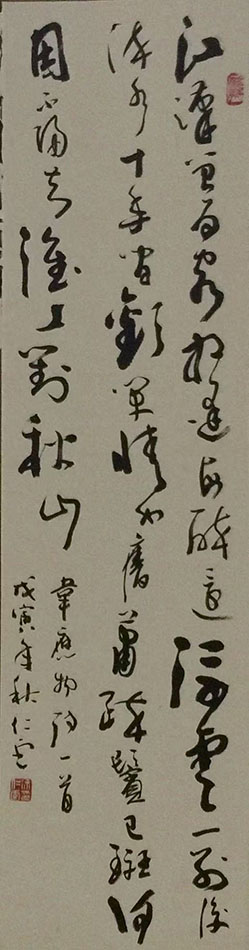 江漢曾為客相逢每醉還浮雲一別後
流水十年間歡笑情如舊蕭疎鬢已斑何
因不歸去淮上對秋山
韋應物詩一首
戊寅年秋仁